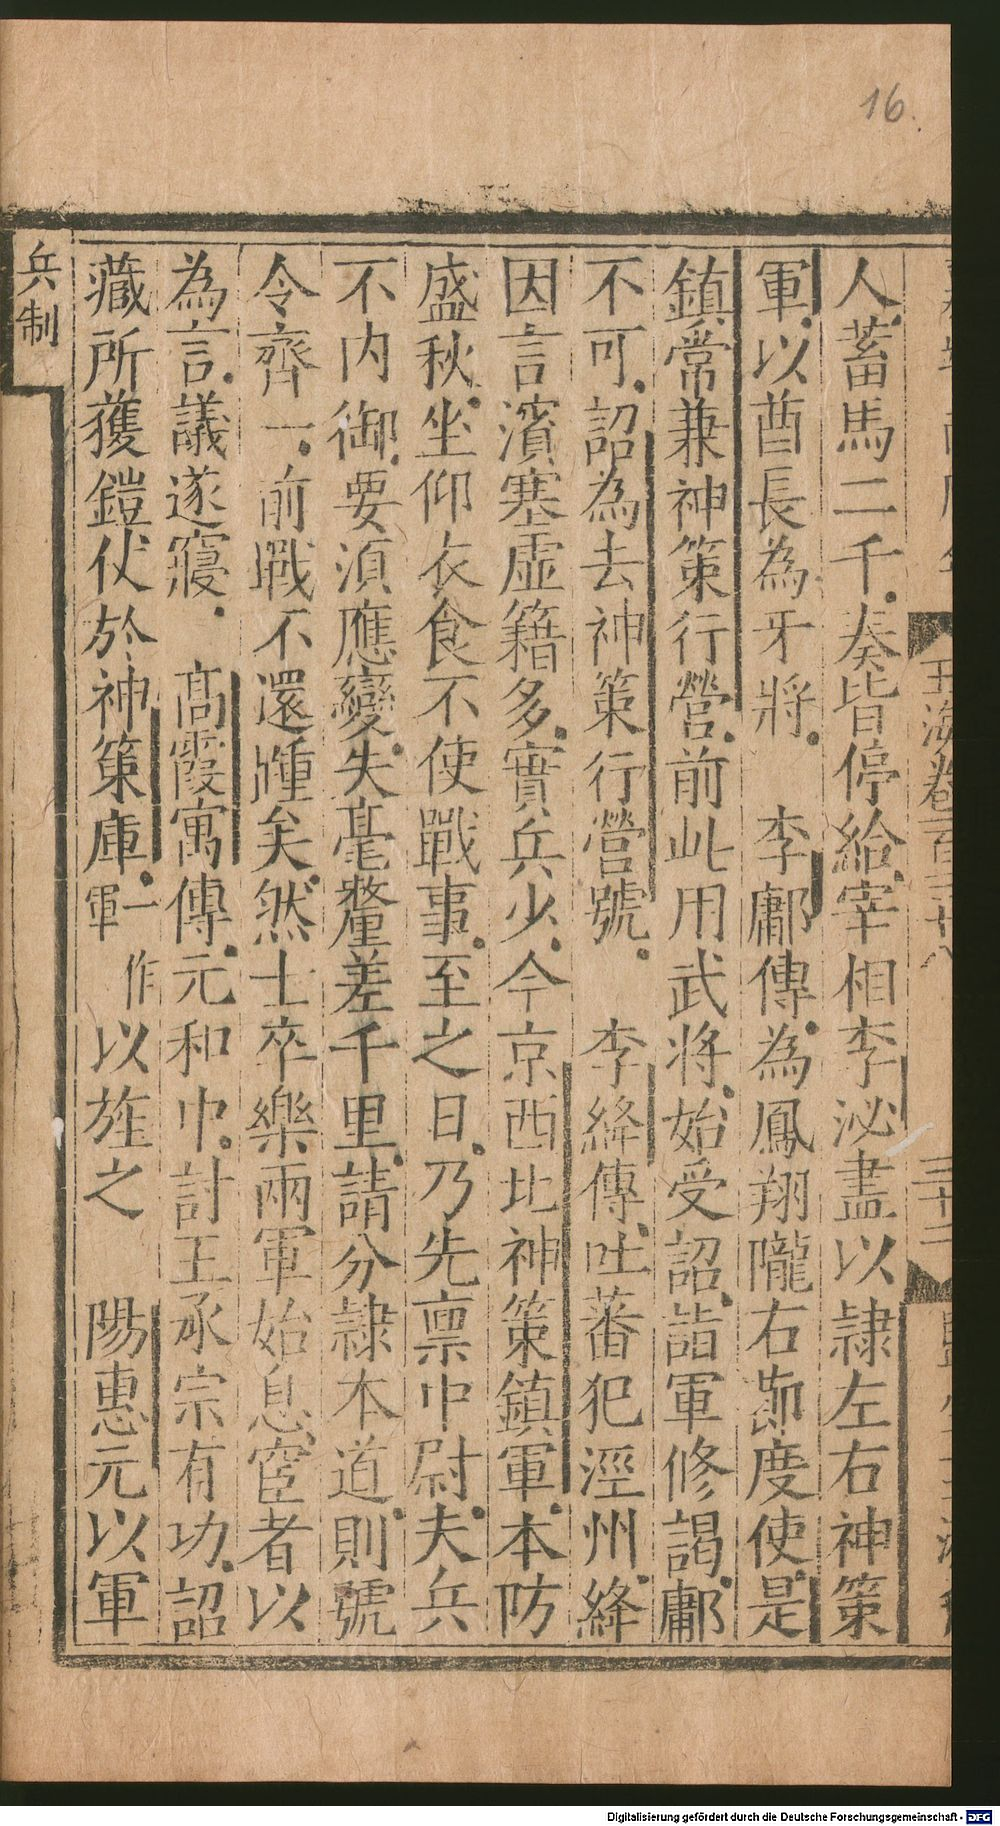 16.
人畜馬二千奏皆停給宰相李泌盡以隷左右神策
軍以酋長為牙將　李鄘傳為鳳翔隴右節度使是
鎮常兼神策行營前此用武將始受詔詣軍修謁鄘
不可詔為去神策行營號　李絳傳吐蕃犯涇州絳
因言濱塞虛籍多實兵少今京西北神策鎮軍本防
盛秋坐仰衣食不使戰事至之日乃先禀中尉夫兵
不内御要湏應變失毫釐差千里請分隷本道則號
令齊一前戰不還踵矣然士卒樂兩軍始息宦者以
為言議遂寢　髙霞寓傳元和中討王承宗有功詔
藏所獲鎧仗於神策庫一作軍以旌之　陽惠元以軍
兵制
玉海卷百三十八
三十二
Digitalisierung gefördert durch die Deutsche Forschungsgemeinschaft - DFG